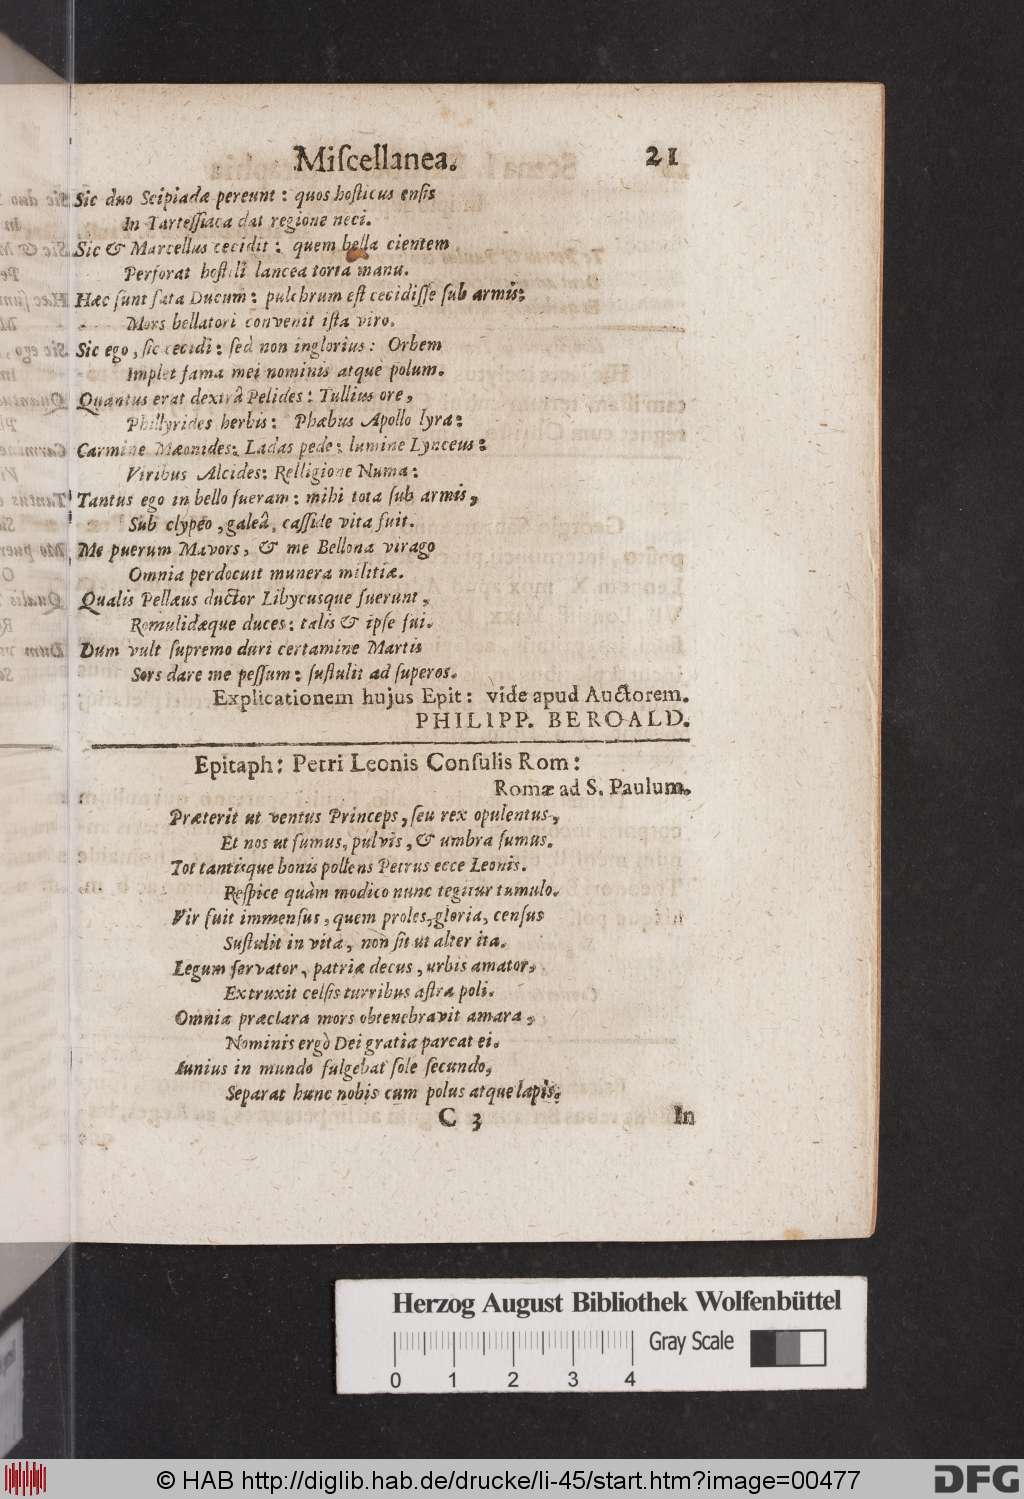 Miſcellanea. 21
Sic duo Scipiadæ pereunt : quos hoſticus enſis
In Tarteſſiaca dat regione neci.
Sic & Marcellus cecidit : quem bella cientem
Perforat hoſtili lancea torta manu.
Hæc ſunt fata Ducum : pulchrum eſt cecidiſſe ſub armis:
Mors bellatori convenit iſta viro.
Sic ego, ſic cecidi : ſed non inglorius : Orbem
Implet fama mei nominis atque polum.
Quantus erat dextrâ Pelides : Tullius ore,
Phillyrides herbis : Phæbus Apollo lyra :
Carmine Mæonides : Ladas pede : lumine Lynceus :
Viribus Alcides : Relligione Numa :
Tantus ego in bello fueram : mihi tota ſub armis,
Sub clypeo, galeâ, caſſide vita fuit.
Me puerum Mavors, & me Bellona virago
Omnia perdocuit munera militiæ.
Qualis Pellæus ductor Libycusque fuerunt,
Romulidæque duces : talis & ipſe fui.
Dum vult ſupremo duri certamine Martis
Sors dare me peſſum : ſuſtulit ad ſuperos.
Explicationem hujus Epit : vide apud Auctorem.
PHILIPP. BEROALD.
Epitaph : Petri Leonis Conſulis Rom :
Romæ ad S. Paulum.
Præterit ut ventus Princeps, ſeu rex opulentus,
Et nos ut fumus, pulvis, & umbra ſumus.
Tot tantisque bonis pollens Petrus ecce Leonis.
Reſpice quàm modico nunc tegitur tumulo.
Vir fuit immenſus, quem proles, gloria, cenſus
Suſtulit in vita, non ſit ut alter ita.
Legum ſervator, patriæ decus, urbis amator,
Extruxit celſis turribus aſtra poli.
Omnia præclara mors obtenebravit amara,
Nominis ergò Dei gratia parcat ei.
Iunius in mundo fulgebat ſole ſecundo,
Separat hunc nobis cum polus atque lapis.
C 3 In
Herzog August Bibliothek Wolfenbüttel
Gray Scale
0 1 2 3 4
© HAB http://diglib.hab.de/drucke/li-45/start.htm?image=00477
DFG